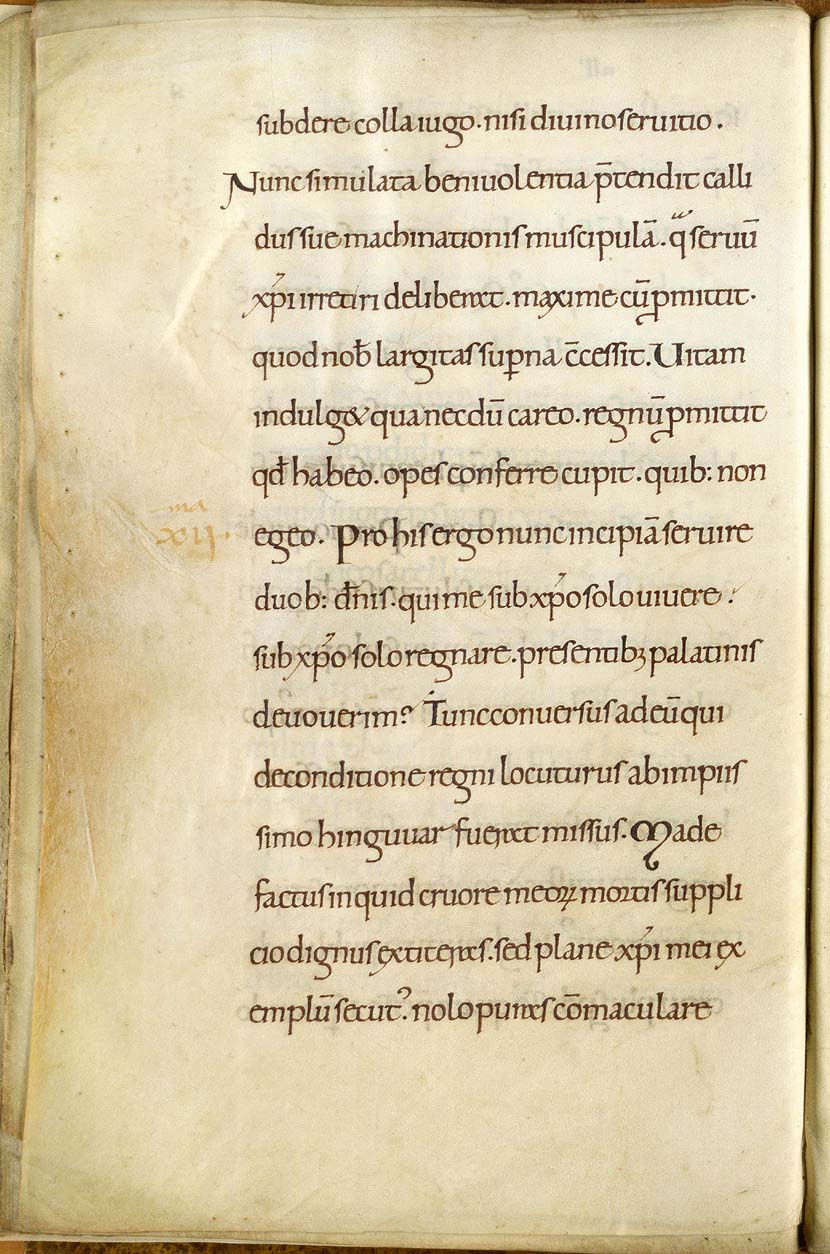 subdere colla iugo. nisi diuino seruitio.
Nunc simulata beniuolentia p̄tendit calli
dus sue machinationis muscipulā. qͣ seruū
xp̄i irretiri deliberat. maxime cū ꝓmittit.
quod nob̄ largitas suꝑna c̄cessit. Uitam
indulg& qua necdū careo. regnū ꝓmittit
qđ habeo. opes conferre cupit. quib: non
egeo. Pro his ergo nunc incipiā seruire
duob: dn̄is. qui me sub xp̄o solo uiuere.
xij.ma
sub xp̄o solo regnare. presentibꝫ palatinis
deuouerim? Tunc conuersus ad eū qui
de conditione regni locuturus ab impiis
simo hinguuar fuerat missus. Made
factus inquid cruore meoꝝ mortis suppli
cio dignus extiteras. sed plane xp̄i mei ex
emplū secut᾽. nolo puras cōmaculare